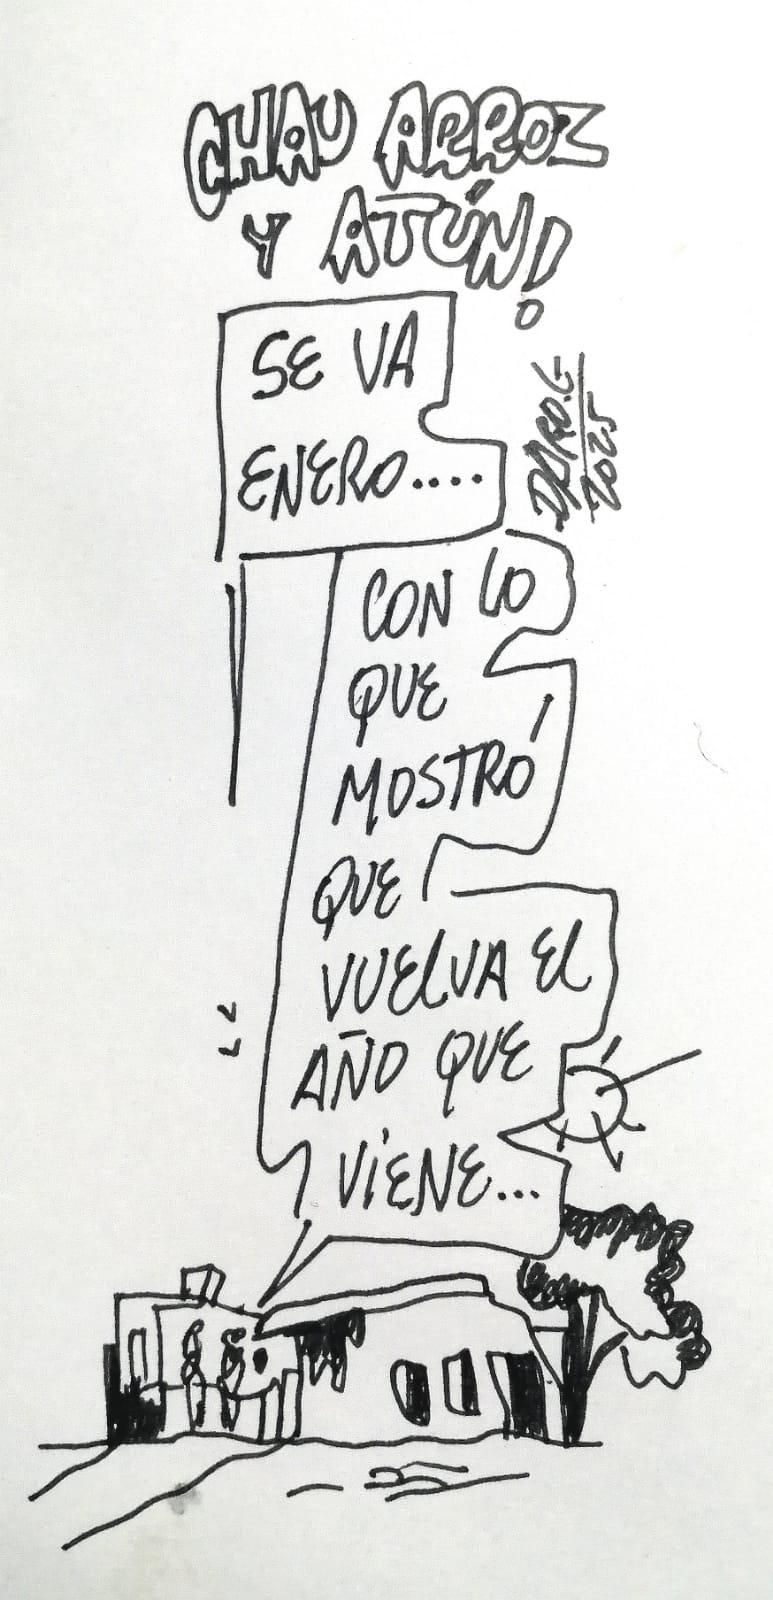 CHAU ARROZ
Y ATÚN!
SE VA
ENERO....
CON LO
QUE
MOSTRÓ
QUE
VUELVA EL
AÑO QUE
VIENE...
2025